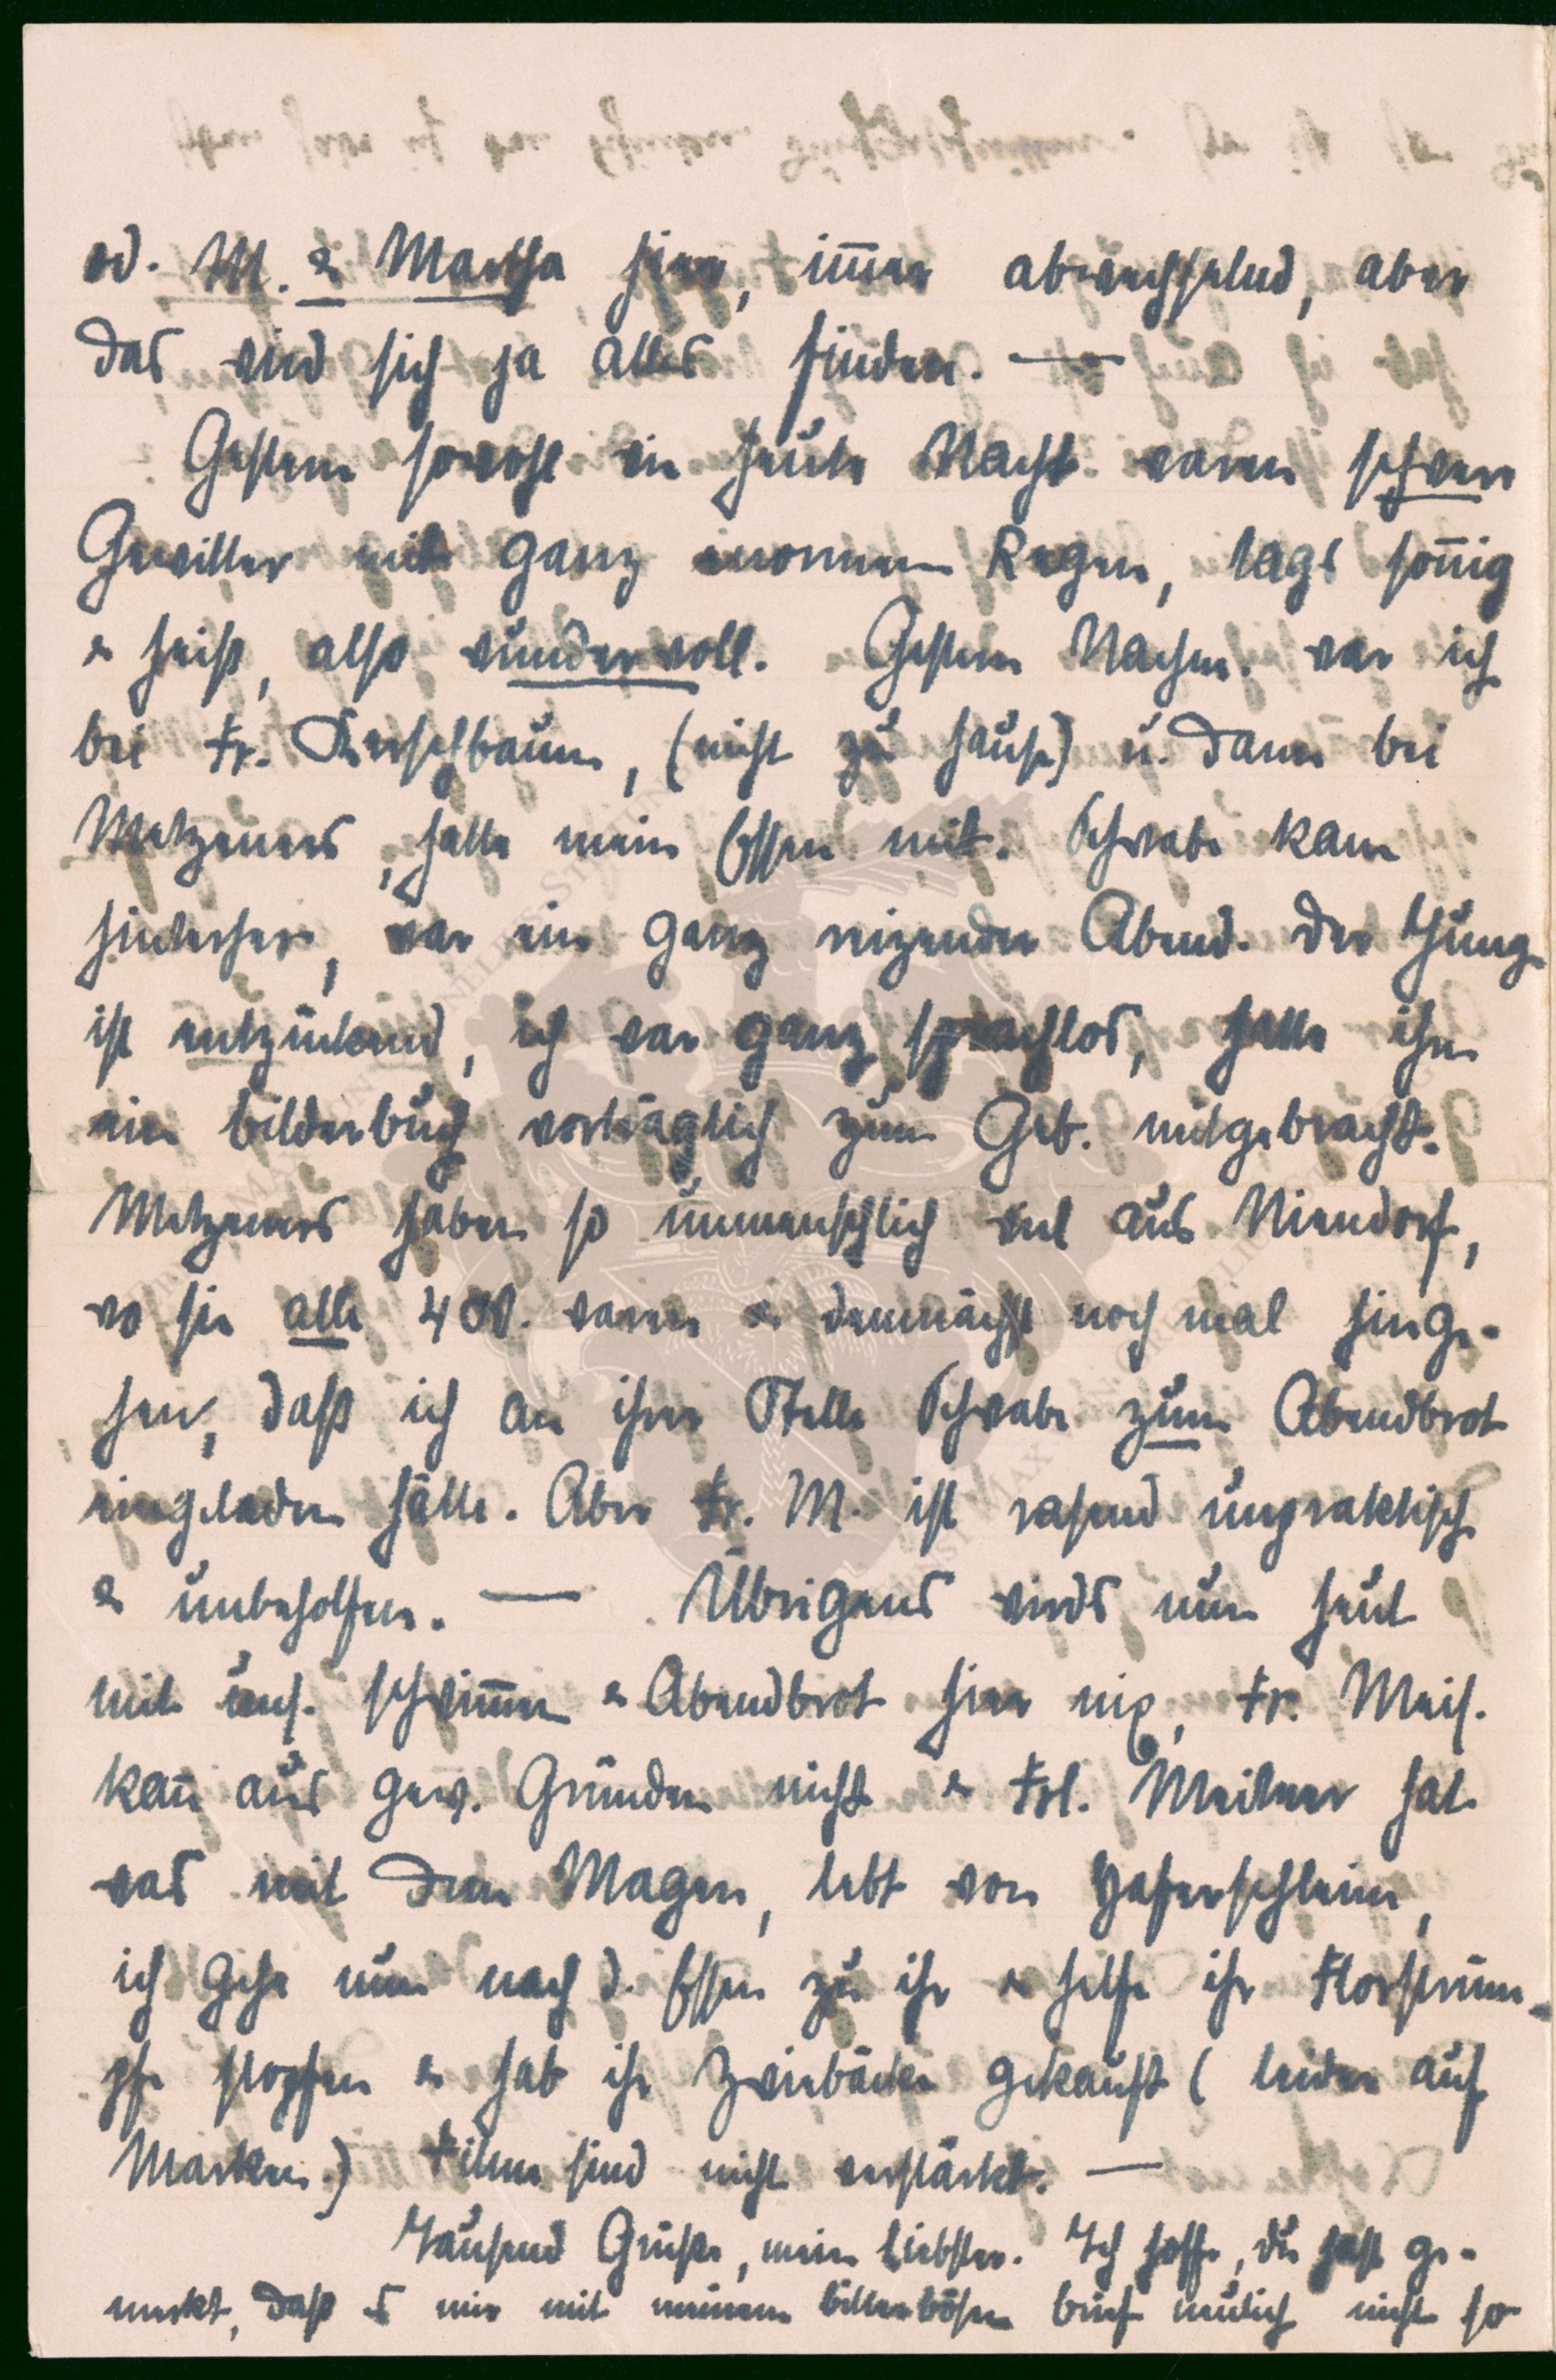 od. M. & Martha hier, im̅er abwechselnd, aber
das wird sich ja alles finden. —
Gestern sowohl wie heute Nacht waren schwere
Gewitter mit ganz enormem Regen, tags son̅ig
& heiß, also wundervoll. Gestern Nachm. war ich
bei Fr. Kerschbaum, (nicht zu Hause) u. dann bei
Metzeners, hatte mein Essen mit. Schwabe kam
hinterher, war ein ganz reizender Abend. Der Junge
ist entzückend, ich war ganz sprachlos, hatte ihm
ein Bilderbuch nachträglich zum Geb. mitgebracht.
Metzeners haben so unmenschlich viel aus Niendorf,
wo sie alle 4 W. waren & demnächst noch mal hinge-
hen, daß ich an ihrer Stelle Schwabe zum Abendbrot
eingeladen hätte. Aber Fr. M. ist rasend unpraktisch
& unbeholfen. — Übrigens wirds nun heut
mit uns. schwim̅en & Abendbrot hier nix, Fr. Meis.
kan̅ aus gew. Gründen nicht & Frl. Meitner hat
was mit dem Magen, lebt von Haferschleim,
ich gehe nun nach d. Essen zu ihr & helfe ihr Florstrüm-
pfe stopfen & hab ihr Zwiebäcke gekauft (leider auf
Marken.) Filme sind nicht verstärkt. —
Tausend Grüße, mein Liebster. Ich hoffe, du hast ge-
merkt, daß es mir mit meinem bitterbösen Brief neulich nicht so